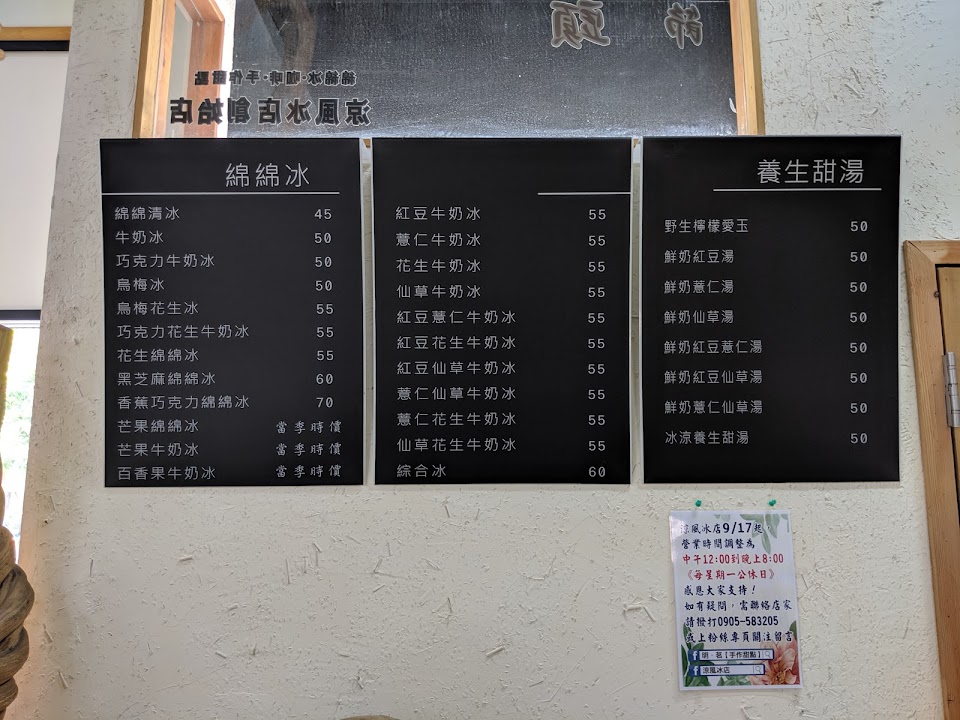 節
頭
綿綿冰·咖啡·手作甜點
涼風冰店創始店
綿綿冰
綿綿清冰 45
牛奶冰 50
巧克力牛奶冰 50
烏梅冰 50
烏梅花生冰 55
巧克力花生牛奶冰 55
花生綿綿冰 55
黑芝麻綿綿冰 60
香蕉巧克力綿綿冰 70
芒果綿綿冰 當季時價
芒果牛奶冰 當季時價
百香果牛奶冰 當季時價
紅豆牛奶冰 55
薏仁牛奶冰 55
花生牛奶冰 55
仙草牛奶冰 55
紅豆薏仁牛奶冰 55
紅豆花生牛奶冰 55
紅豆仙草牛奶冰 55
薏仁仙草牛奶冰 55
薏仁花生牛奶冰 55
仙草花生牛奶冰 55
綜合冰 60
養生甜湯
野生檸檬愛玉 50
鮮奶紅豆湯 50
鮮奶薏仁湯 50
鮮奶仙草湯 50
鮮奶紅豆薏仁湯 50
鮮奶紅豆仙草湯 50
鮮奶薏仁仙草湯 50
冰涼養生甜湯 50
涼風冰店9/17起，
營業時間調整為
中午12:00到晚上8:00
《每星期一公休日》
感恩大家支持！
如有疑問，需聯絡店家
請撥打0905-583205
或上粉絲專頁關注留言
明．茗【手作甜點】
涼風冰店